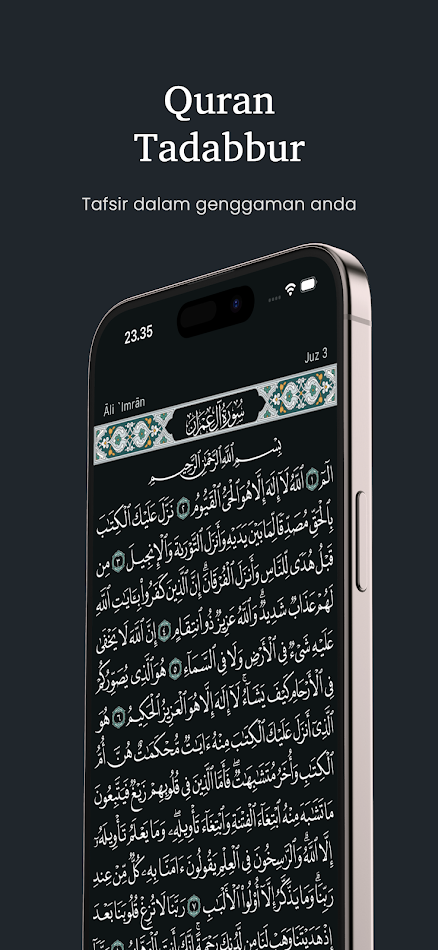 Quran
Tadabbur
Tafsir dalam genggaman anda
23.35
Āli `Imrān
Juz 3
سُورَةُ آلِ عِمْرَانَ
بِسْمِ ٱللَّهِ ٱلرَّحْمَٰنِ ٱلرَّحِيمِ
الٓمٓ ١ ٱللَّهُ لَآ إِلَٰهَ إِلَّا هُوَ ٱلْحَىُّ ٱلْقَيُّومُ ٢ نَزَّلَ عَلَيْكَ ٱلْكِتَٰبَ
بِٱلْحَقِّ مُصَدِّقًا لِّمَا بَيْنَ يَدَيْهِ وَأَنزَلَ ٱلتَّوْرَىٰةَ وَٱلْإِنجِيلَ ٣ مِن
قَبْلُ هُدًى لِّلنَّاسِ وَأَنزَلَ ٱلْفُرْقَانَ ۗ إِنَّ ٱلَّذِينَ كَفَرُوا۟ بِـَٔايَٰتِ ٱللَّهِ
لَهُمْ عَذَابٌ شَدِيدٌ ۗ وَٱللَّهُ عَزِيزٌ ذُو ٱنتِقَامٍ ٤ إِنَّ ٱللَّهَ لَا يَخْفَىٰ
عَلَيْهِ شَىْءٌ فِى ٱلْأَرْضِ وَلَا فِى ٱلسَّمَآءِ ٥ هُوَ ٱلَّذِى يُصَوِّرُكُمْ
فِى ٱلْأَرْحَامِ كَيْفَ يَشَآءُ ۚ لَآ إِلَٰهَ إِلَّا هُوَ ٱلْعَزِيزُ ٱلْحَكِيمُ ٦ هُوَ
ٱلَّذِىٓ أَنزَلَ عَلَيْكَ ٱلْكِتَٰبَ مِنْهُ ءَايَٰتٌ مُّحْكَمَٰتٌ هُنَّ أُمُّ
ٱلْكِتَٰبِ وَأُخَرُ مُتَشَٰبِهَٰتٌ ۖ فَأَمَّا ٱلَّذِينَ فِى قُلُوبِهِمْ زَيْغٌ فَيَتَّبِعُونَ
مَا تَشَٰبَهَ مِنْهُ ٱبْتِغَآءَ ٱلْفِتْنَةِ وَٱبْتِغَآءَ تَأْوِيلِهِۦ ۗ وَمَا يَعْلَمُ تَأْوِيلَهُۥٓ
إِلَّا ٱللَّهُ ۗ وَٱلرَّٰسِخُونَ فِى ٱلْعِلْمِ يَقُولُونَ ءَامَنَّا بِهِۦ كُلٌّ مِّنْ عِندِ
رَبِّنَا ۗ وَمَا يَذَّكَّرُ إِلَّآ أُو۟لُوا۟ ٱلْأَلْبَٰبِ ٧ رَبَّنَا لَا تُزِغْ قُلُوبَنَا بَعْدَ
إِذْ هَدَيْتَنَا وَهَبْ لَنَا مِن لَّدُنكَ رَحْمَةً ۚ إِنَّكَ أَنتَ ٱلْوَهَّابُ